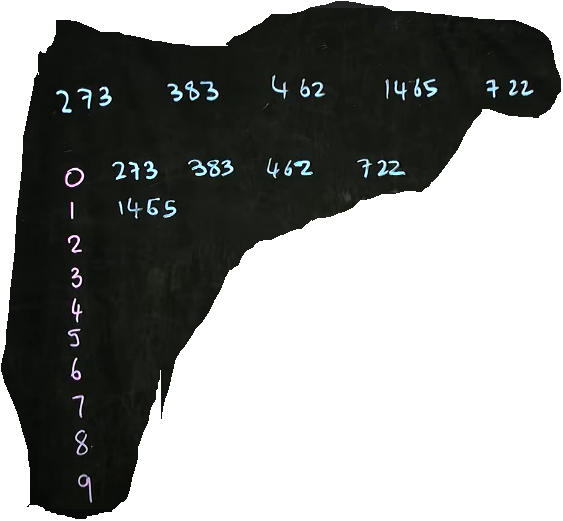 273 383 462 1465 722
0 273 383 462 722
1 1465
2
3
4
5
6
7
8
9